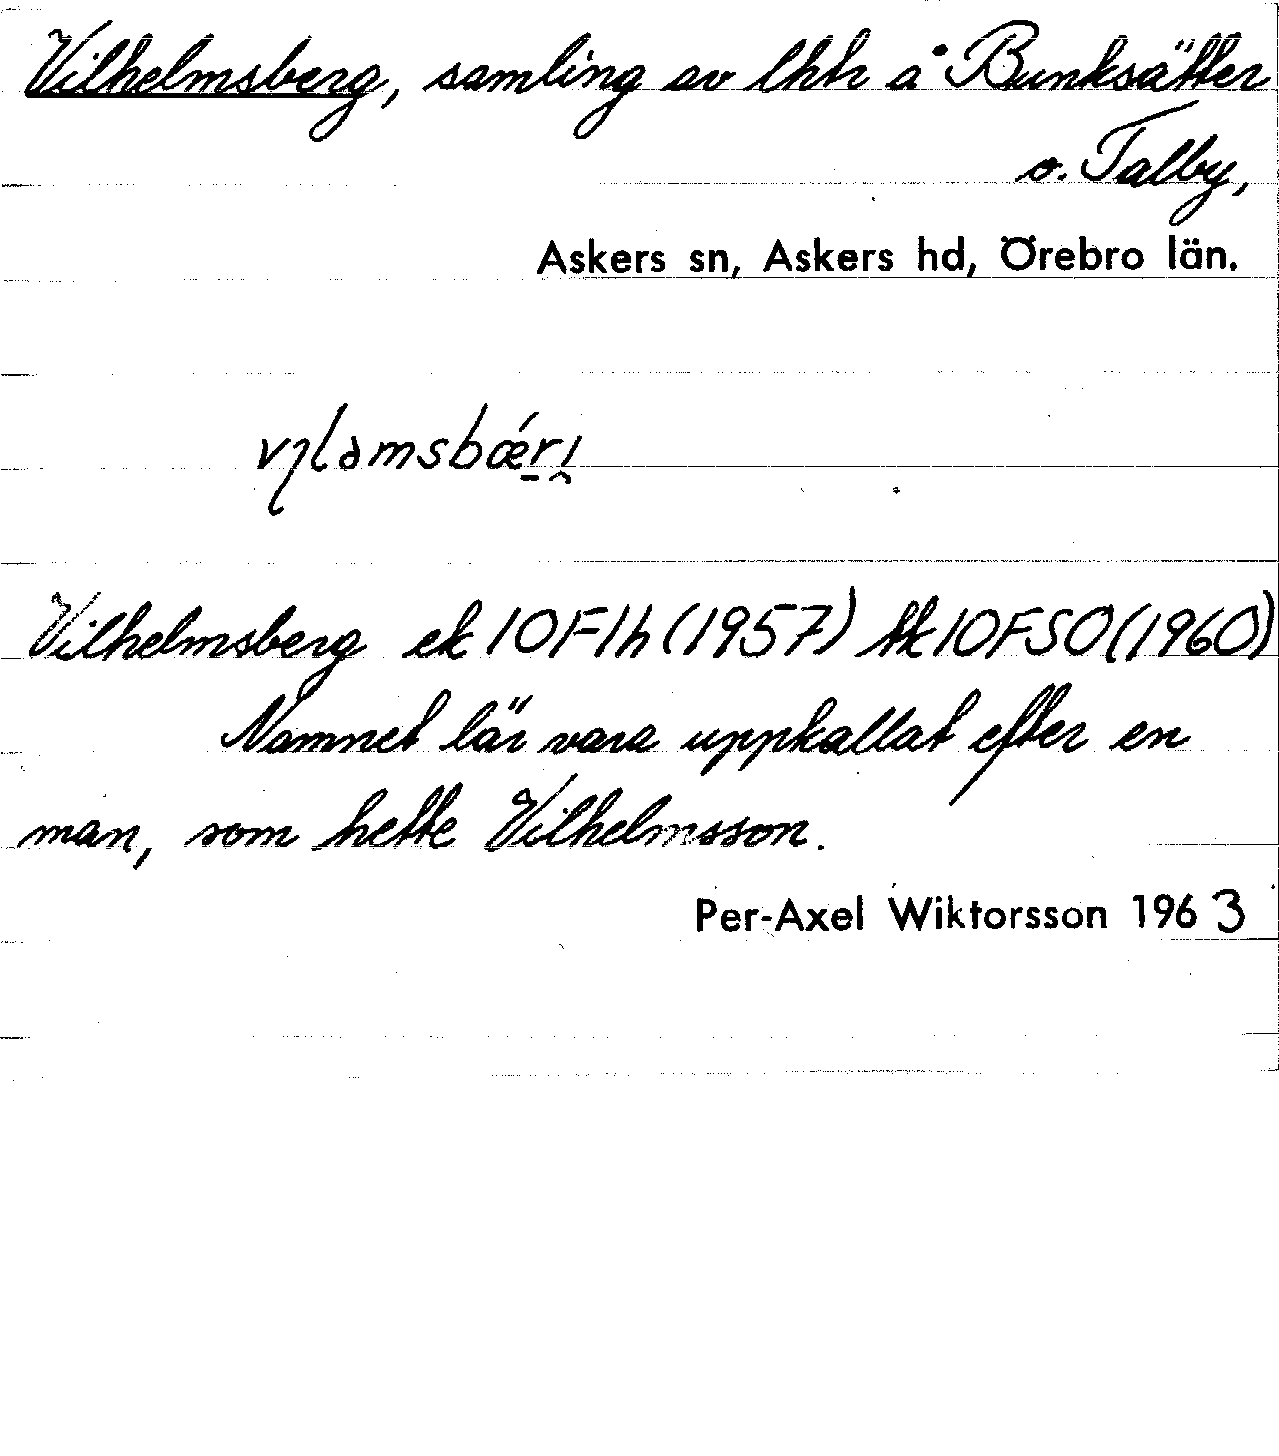 Vilhelmsberg, samling av lhh å Bunksätter
o. Talby,
Askers sn, Askers hd, Örebro län.
Vilhelmsberg ek 10F1h (1957) tk 10FSO (1960)
Namnet lär vara uppkallat efter en
man, som hette Vilhelmsson.
Per-Axel Wiktorsson 1963